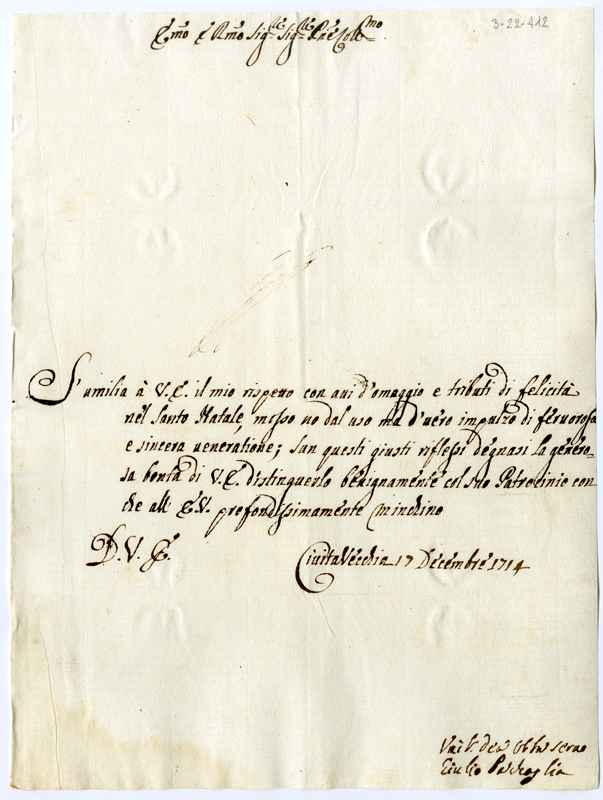 3-22-442
Emo e Rmo Sig.re Sig.re Pne Coll.mo
S'umilia à V. E. il mio rispetto con atti d'omaggio e tributi di felicità
nel Santo Natale, mosso no dal uso ma d'vero impulzo di fervorosa
e sincera veneratione; San questi giusti riflessi degnasi la genero-
sa bontà di V. E. distinguerlo benignamente col suo Patrocinio con
che all' E. V. profondissimamente m'inchino
D. V. E.
CivitaVecchia 17 Decembre 1714
Giulio